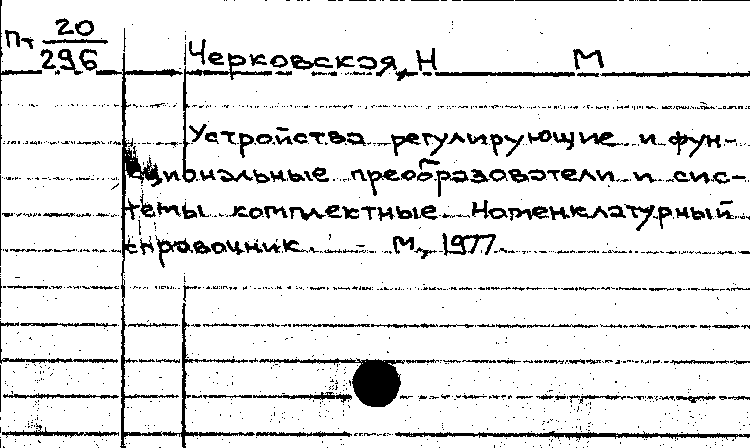 Пт 20/296
Черковская, Н М
Устройства регулирующие и фун-
кциональные преобразователи и сис-
темы комплектные. Номенклатурный
справочник. - М., 1977.